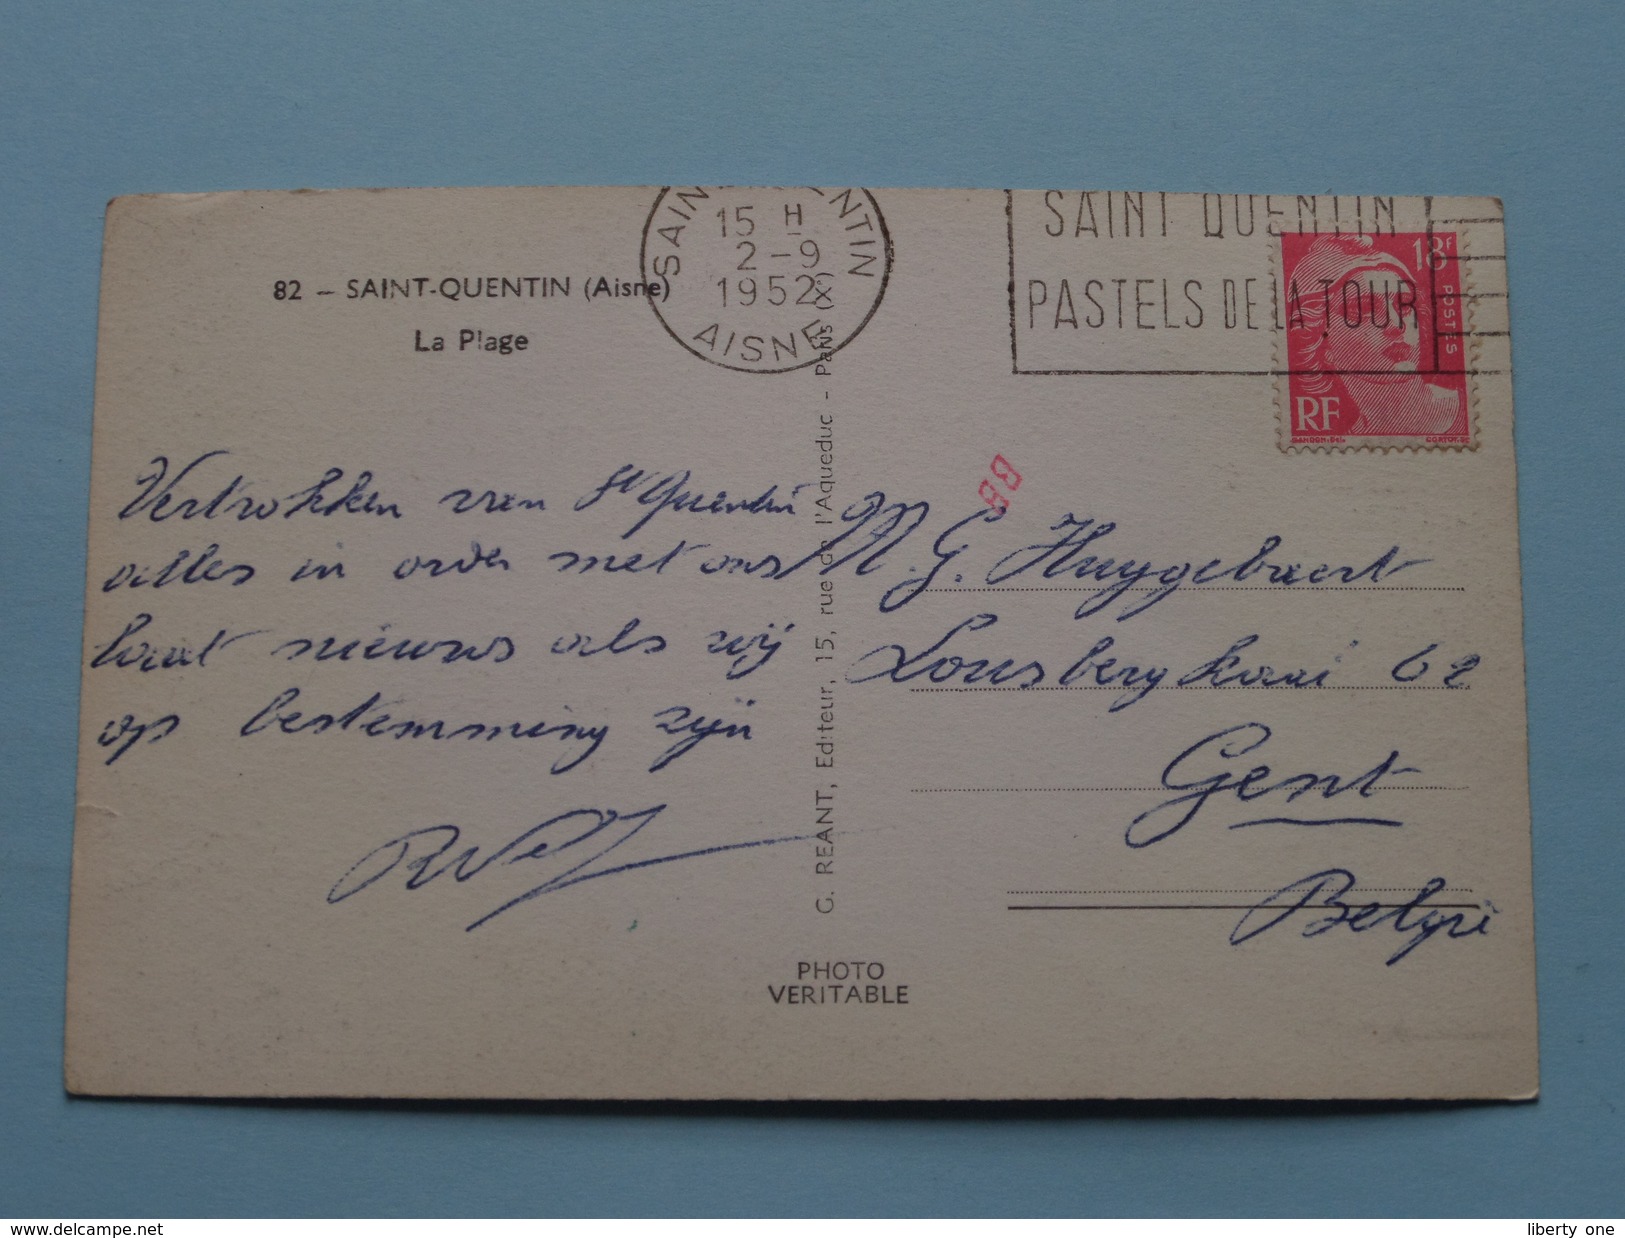 82 – SAINT-QUENTIN (Aisne)
La Plage
15 H
2 - 9
1952
AISNE
SAINT QUENTIN
PASTELS DE LA TOUR
18F
POSTES
RF
GANDON-Del.
CORTOT-SC
BB
Vertrokken van St Quentin
alles in orde met ons
laat nieuws als wij
op bestemming zijn
M. G. Huygebaert
Lousbergkaai 62
Gent
België
G. REANT, Editeur, 15, rue de l'Aqueduc - Paris (X°)
PHOTO
VERITABLE
www.delcampe.net
liberty one